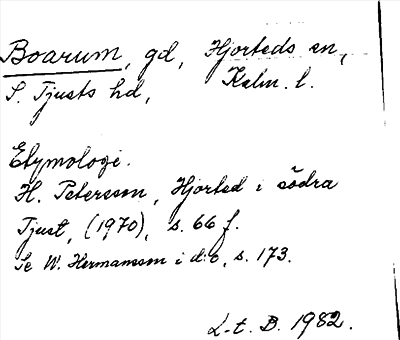 Boarum, gd, Hjorteds sn,
S. Tjusts hd, Kalm. l.
Etymologi.
H. Petersson, Hjorted i södra
Tjust, (1970), s. 66 f.
Se W. Hermansson i d:o, s. 173.
L-t. B. 1982.